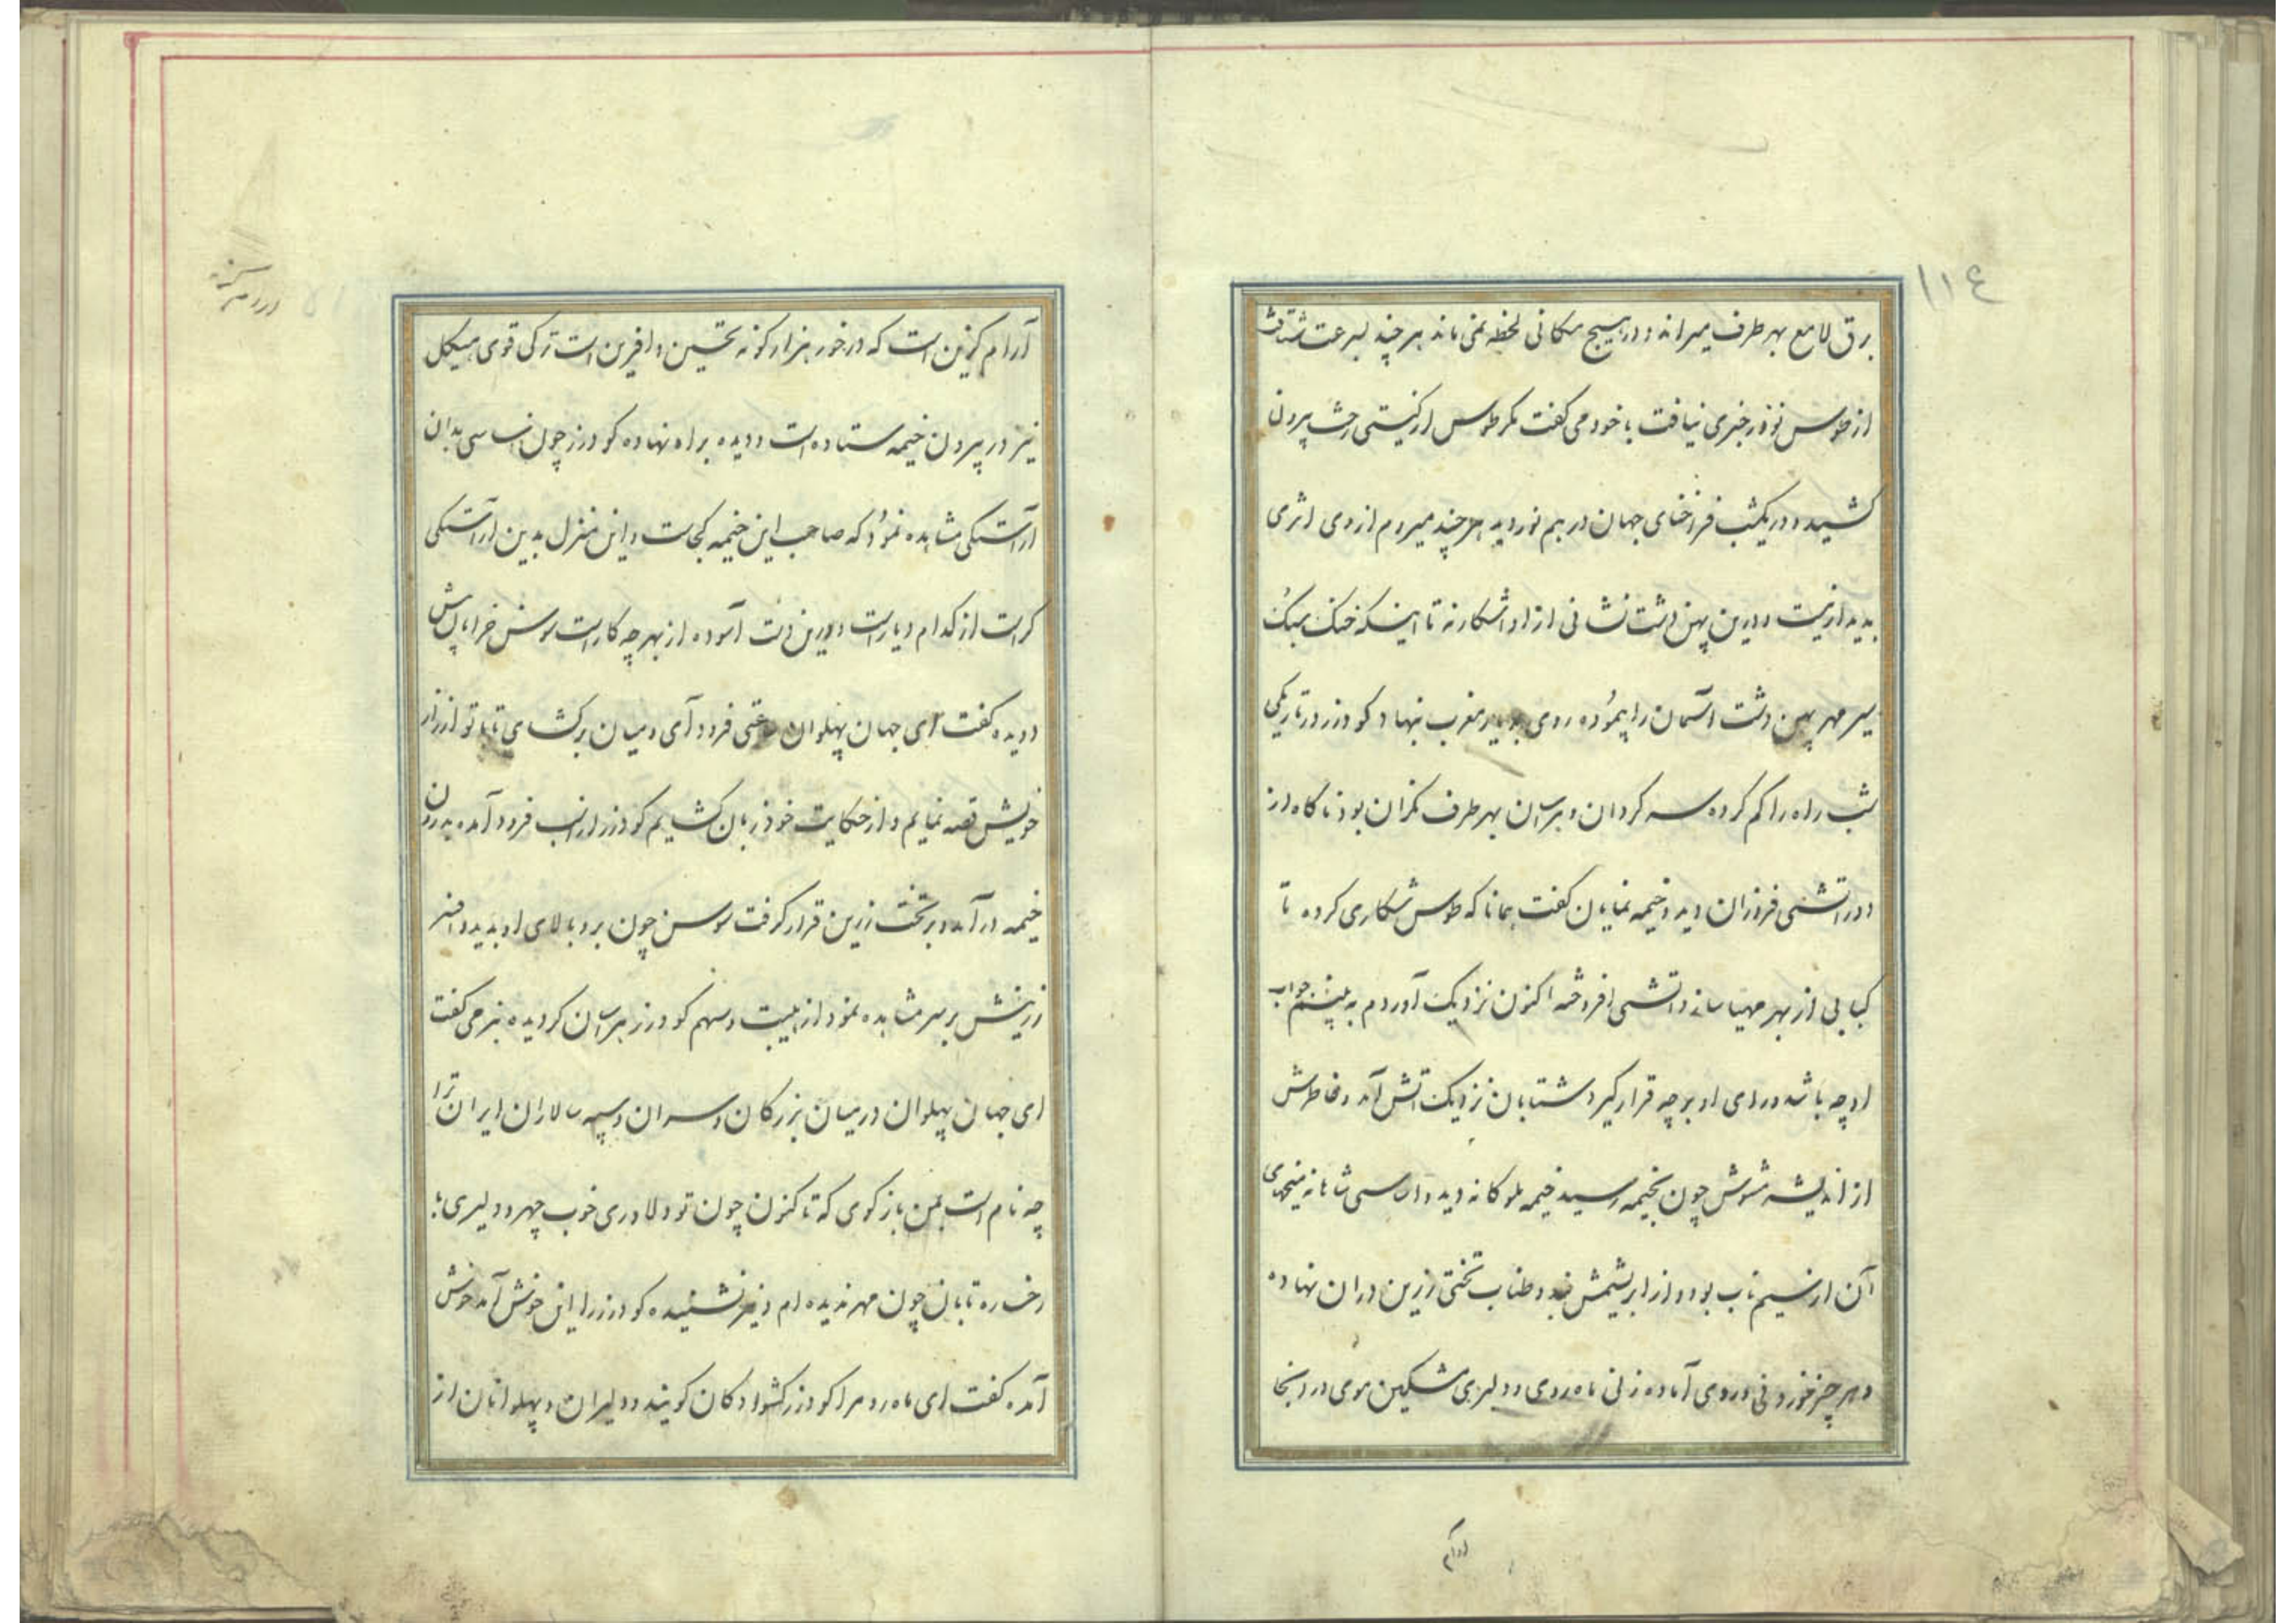 ١١٤
برق لامع بهر طرف میراند و در هیچ مکانی لحظه نمی ماند هر چند بسرعت شتافت
از طوس نوذر خبری نیافت با خود می گفت مکر طوس از کیتی رخت بیرون
کشیده و در یکشب فراخنای جهان در هم نوردیده هر چند میروم از وی اثری
پدیدار نیست و درین پهن دشت نشانی از او اشکار نه تا اینکه خنک سبک
سیر مهر پهن دشت آسمان را پیموده روی بدیار مغرب نهاد کودرز در تاریکی
شب راه را کم کرده سر کردان و هراسان بهر طرف نکران بود ناکاه از
دور اتشی فروزان دید و خیمه نمایان کفت همانا که طوس شکاری کرده تا
کبابی از بهر مهیا سازد اتشی افروخته اکنون نزدیک آوردم به بینم جواب
او چه باشد و رای او بر چه قرار کیرد شتابان نزدیک اتش آمد و خاطرش
از اندیشه مشوش چون بخیمه رسید خیمه ملوکانه دید و اساسی شاهانه
آن از سیم ناب بود و از ابریشمش بند و طناب تختی زرین در ان نهاده
و هر چیز خوردنی در وی آماده زنی ماه روی و دلبری مشکین موی در اینجا
آرام
آرام کزین است که در خور هزار کونه تحسین و افرین است ترکی قوی هیکل
نیز در بیرون خیمه ستاده است و دیده براه نهاده کودرز چون اساسی بدان
آراستکی مشاهده نمود که صاحب این خیمه کجاست و این منزل بدین اراستکی
کراست از کدام دیار است و درین دشت آسوده از بهر چه کار است سوسن خرامان پیش
دویده کفت ای جهان پهلوان ساعتی فرود آی و میان برکشای تا با تو از راز
خویش قصه نمایم و از حکایت خود زبان کشایم کودرز از اسب فرود آمده بدرون
خیمه در آمد و بر تخت زرین قرار کرفت سوسن چون برو بالای او بدید و افسر
زرینش بر سر مشاهده نمود از هیبت و سهم کودرز هراسان کردیده بنرمی کفت
ای جهان پهلوان در میان بزرکان و سران و سپه سالاران ایران ترا
چه نام است بمن باز کوی که تا کنون چون تو دلاوری خوب چهر و دلیری با
رخساره تابان چون مهر ندیده ام و نیز نشنیده کودرز را این خوش آمد خوش
آمده کفت ای ماه رو مرا کودرز کشوادکان کویند و دلیران و پهلوانان از